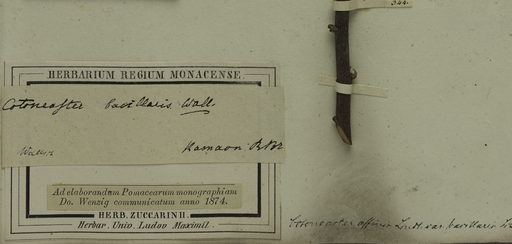 344.
HERBARIUM REGIUM MONACENSE.
Cotoneaster bacillaris Wall.
Kamaon
Ad elaborandam Pomacearum monographiam
Do. Wenzig communicatum anno 1874.
HERB. ZUCCARINII.
Herbar. Univ. Ludov. Maximil.
Cotoneaster affinis Lindl. var. bacillaris